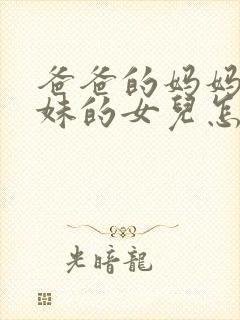 爸爸的妈妈
妹的女兒怎
光暗龍